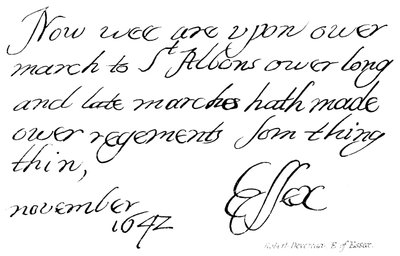 Now wee are vpon ower
march to St Albons ower long
and late marches hath made
ower regements som thing
thin,
november
1642
Essex
Robert Devereux E of Essex.